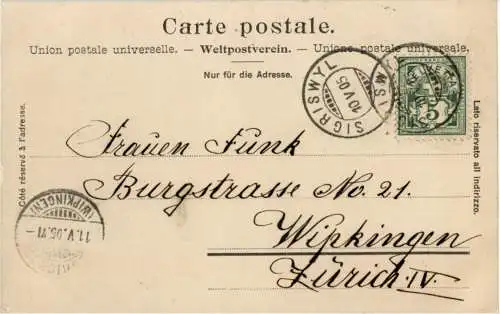 Carte postale.
Union postale universelle. — Weltpostverein. — Unione postale universale.
Nur für die Adresse.
SIGRISWYL
10 V 05
HELVETIA
5
Côté réservé à l'adresse.
Lato riservato all'indirizzo.
Frauen Funk
Burgstrasse No. 21.
Wipkingen
Zürich IV.
(WIPKINGEN)
11. V. 05. VI –